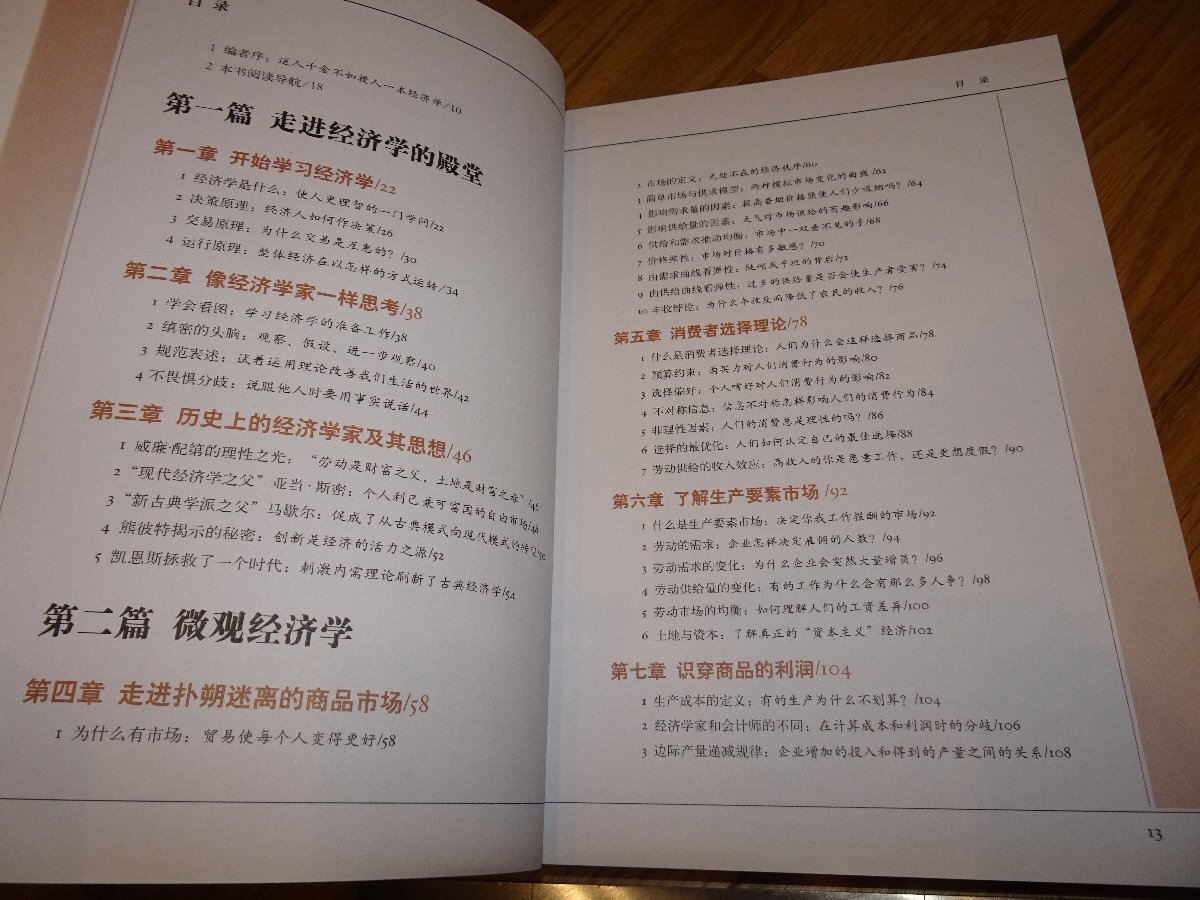 目 录
1 编者序：送人千金不如授人一本经济学/10
2 本书阅读导航/18
第一篇 走进经济学的殿堂
第一章 开始学习经济学/22
1 经济学是什么：使人更理智的一门学问/22
2 决策原理：经济人如何作决策/26
3 交易原理：为什么交易是互惠的？/30
4 运行原理：整体经济在以怎样的方式运转/34
第二章 像经济学家一样思考/38
1 学会看图：学习经济学的准备工作/38
2 缜密的头脑：观察、假设、进一步观察/40
3 规范表述：试着运用理论改善我们生活的世界/42
4 不畏惧分歧：说服他人时要用事实说话/44
第三章 历史上的经济学家及其思想/46
1 威廉·配第的理性之光：“劳动是财富之父，土地是财富之母”/46
2 “现代经济学之父”亚当·斯密：个人利己兼可富国的自由市场/48
3 “新古典学派之父”马歇尔：促成了从古典模式向现代模式的转变/50
4 熊彼特揭示的秘密：创新是经济的活力之源/52
5 凯恩斯拯救了一个时代：刺激内需理论刷新了古典经济学/54
第二篇 微观经济学
第四章 走进扑朔迷离的商品市场/58
1 为什么有市场：贸易使每个人变得更好/58
目 录
2 市场的定义：无处不在的经济秩序/60
3 简单市场与供求模型：两种模拟市场变化的曲线/62
4 影响需求量的因素：提高香烟价格能使人们少吸烟吗？/64
5 影响供给量的因素：天气对市场供给的有趣影响/66
6 供给和需求推动均衡：市场中一双看不见的手/68
7 价格弹性：市场对价格有多敏感？/70
8 由需求曲线看弹性：陡峭或平坦的背后/72
9 由供给曲线看弹性：过多的供给量是否会使生产者受害？/74
10 丰收悖论：为什么丰收反而降低了农民的收入？/76
第五章 消费者选择理论/78
1 什么是消费者选择理论：人们为什么会这样选择商品/78
2 预算约束：购买力对人们消费行为的影响/80
3 选择偏好：个人嗜好对人们消费行为的影响/82
4 不对称信息：信息不对称怎样影响人们的消费行为/84
5 非理性因素：人们的消费总是理性的吗？/86
6 选择的最优化：人们如何认定自己的最佳选择/88
7 劳动供给的收入效应：高收入的你是愿意工作，还是更想度假？/90
第六章 了解生产要素市场 /92
1 什么是生产要素市场：决定你我工作报酬的市场/92
2 劳动的需求：企业怎样决定雇佣的人数？/94
3 劳动需求的变化：为什么企业会突然大量增员？/96
4 劳动供给量的变化：有的工作为什么会有那么多人争？/98
5 劳动市场的均衡：如何理解人们的工资差异/100
6 土地与资本：了解真正的“资本主义”经济/102
第七章 识穿商品的利润/104
1 生产成本的定义：有的生产为什么不划算？/104
2 经济学家和会计师的不同：在计算成本和利润时的分歧/106
3 边际产量递减规律：企业增加的投入和得到的产量之间的关系/108
13